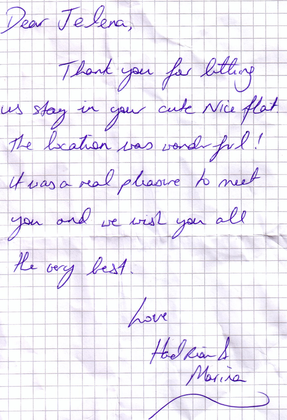 Dear Jelena,
Thank you for letting
us stay in your cute Nice flat
The location was wonderful!
it was a real pleasure to meet
you and we wish you all
the very best.
Love
Hadrian &
Marina